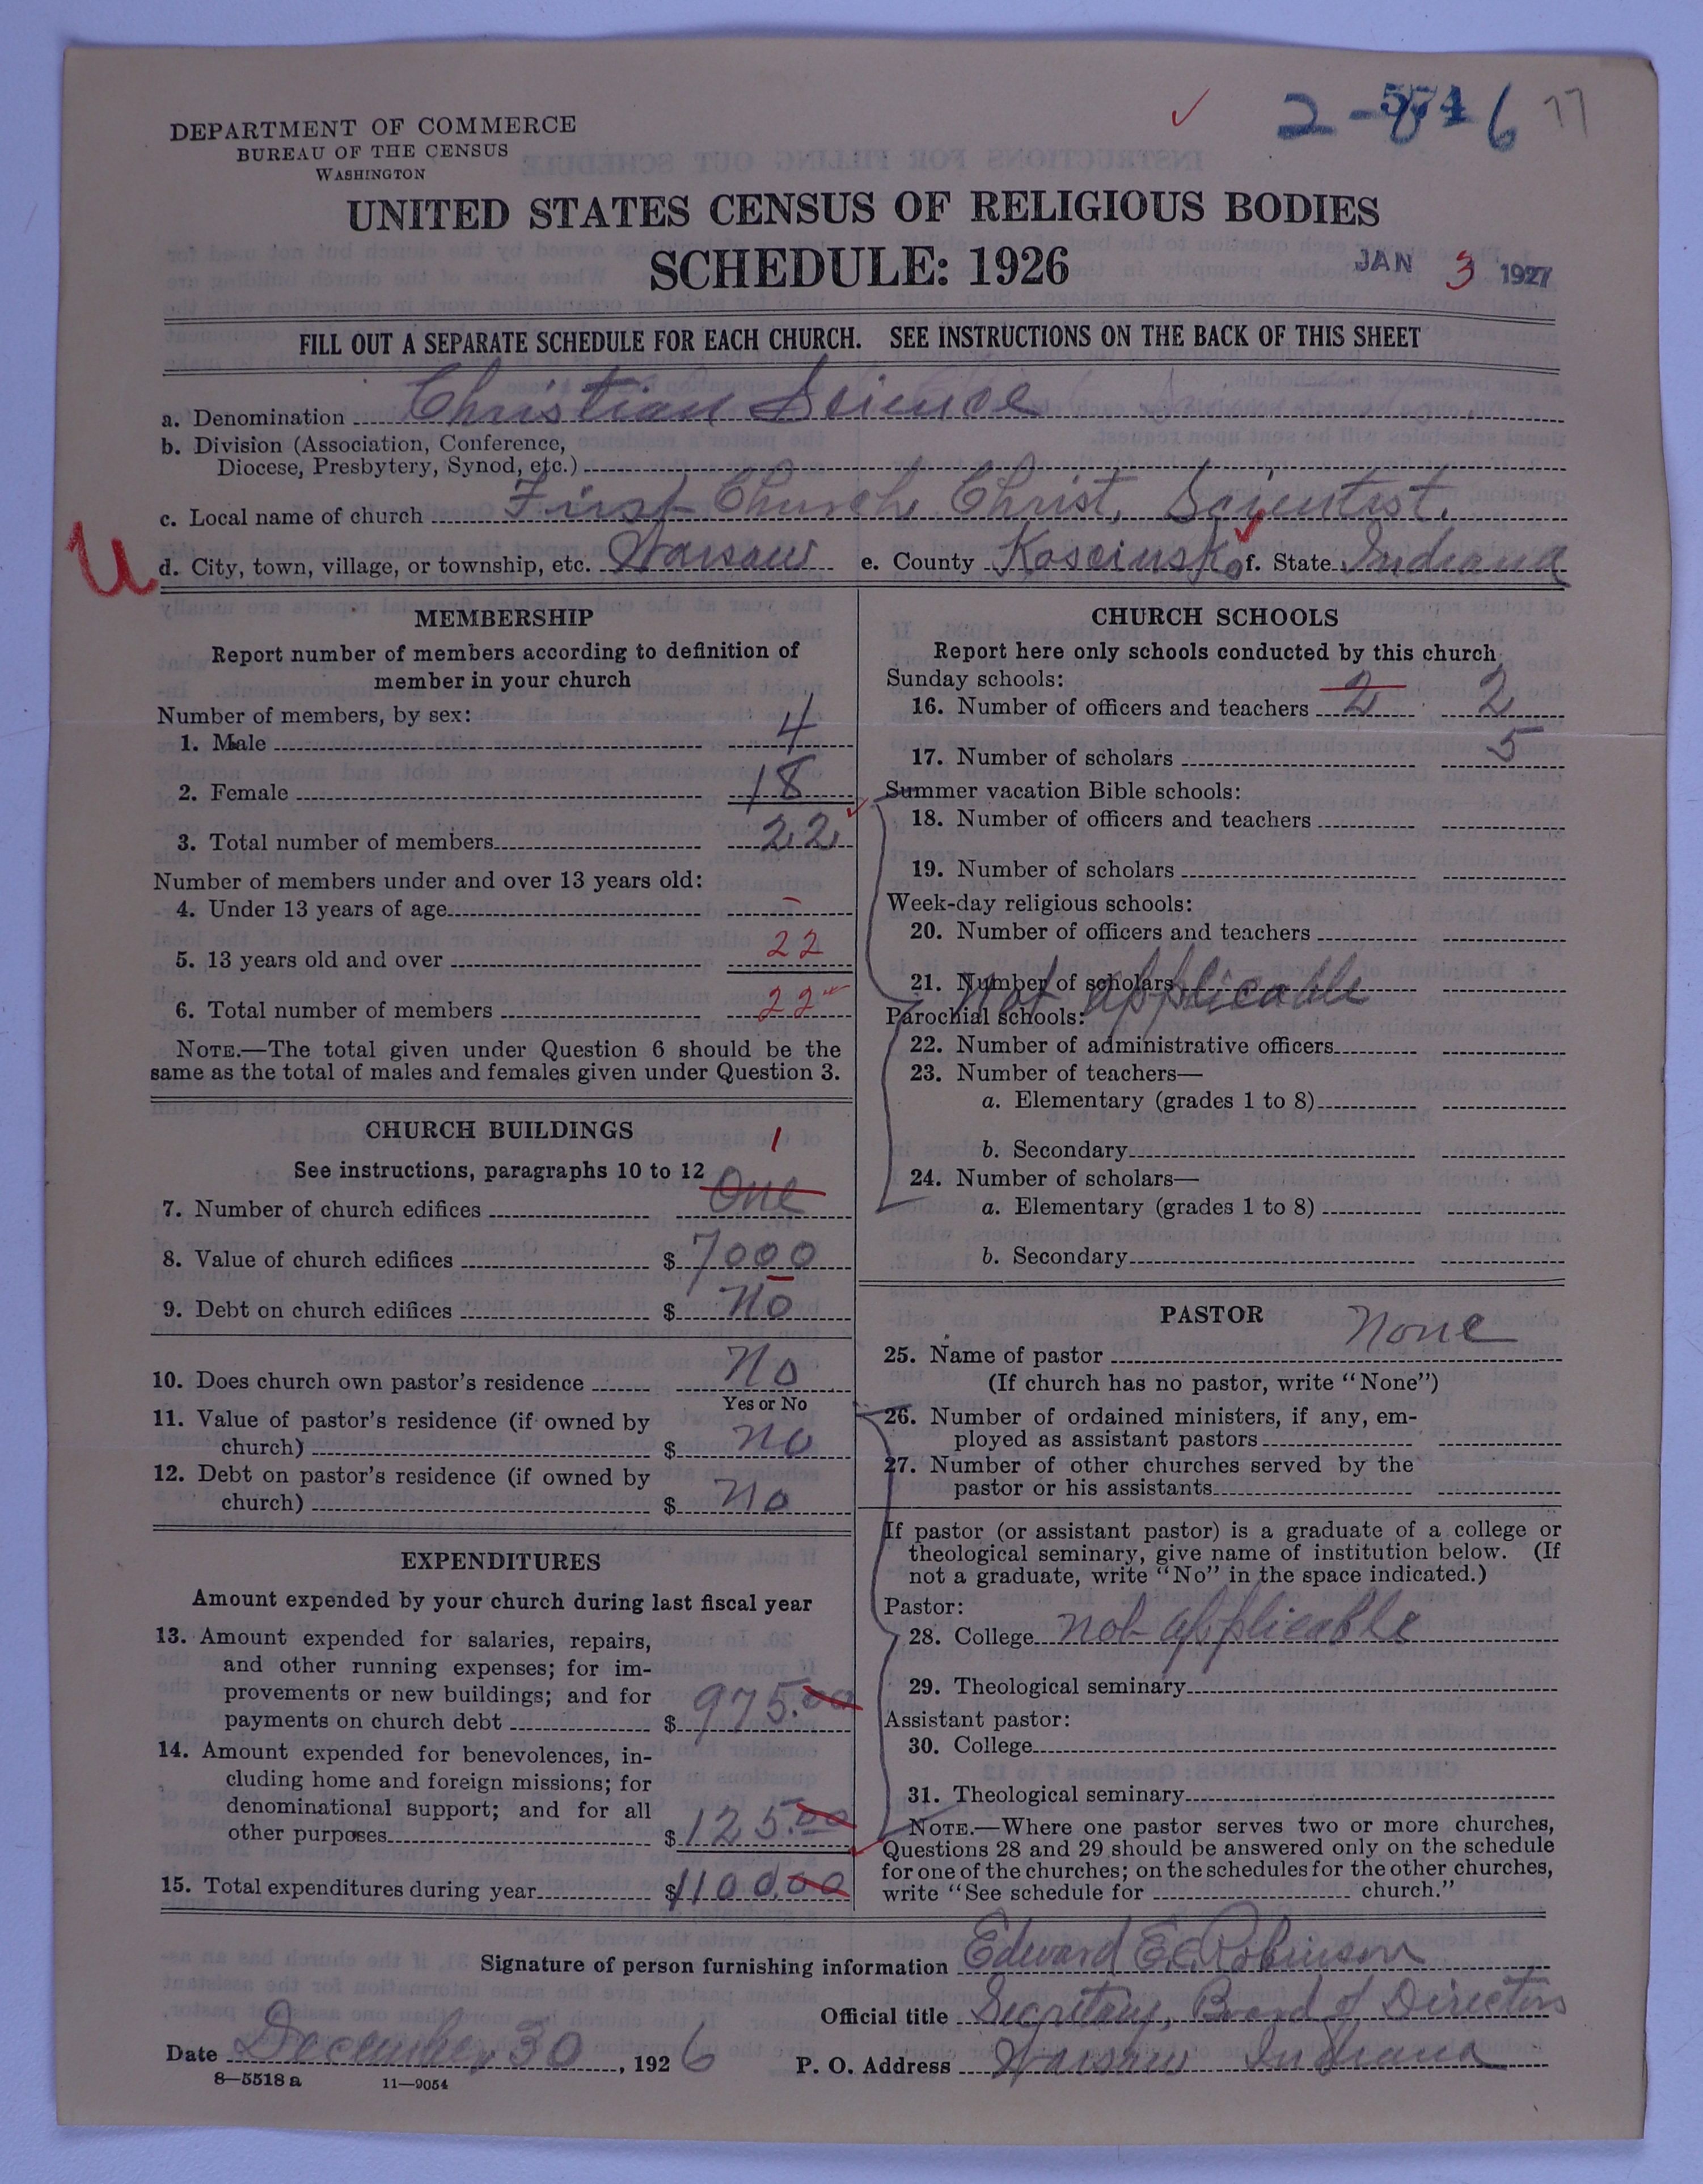 2-5516 77
DEPARTMENT OF COMMERCE
BUREAU OF THE CENSUS
WASHINGTON
UNITED STATES CENSUS OF RELIGIOUS BODIES
SCHEDULE: 1926
JAN 3 1927
FILL OUT A SEPARATE SCHEDULE FOR EACH CHURCH. SEE INSTRUCTIONS ON THE BACK OF THIS SHEET
a. Denomination Christian Science
b. Division (Association, Conference,
Diocese, Presbytery, Synod, etc.)
c. Local name of church First Church Christ, Scientist.
U d. City, town, village, or township, etc. Warsaw e. County Kosciusko f. State Indiana
MEMBERSHIP
Report number of members according to definition of
member in your church
Number of members, by sex:
1. Male 4
2. Female 18
3. Total number of members 22
Number of members under and over 13 years old:
4. Under 13 years of age –
5. 13 years old and over 22
6. Total number of members 22
NOTE.—The total given under Question 6 should be the
same as the total of males and females given under Question 3.
CHURCH BUILDINGS
See instructions, paragraphs 10 to 12
1
7. Number of church edifices One
8. Value of church edifices $ 7000
9. Debt on church edifices $ No
10. Does church own pastor's residence No
Yes or No
11. Value of pastor's residence (if owned by
church) $ No
12. Debt on pastor's residence (if owned by
church) $ No
EXPENDITURES
Amount expended by your church during last fiscal year
13. Amount expended for salaries, repairs,
and other running expenses; for im-
provements or new buildings; and for
payments on church debt $ 975.00
14. Amount expended for benevolences, in-
cluding home and foreign missions; for
denominational support; and for all
other purposes $ 125.00
15. Total expenditures during year $1100.00
CHURCH SCHOOLS
Report here only schools conducted by this church
Sunday schools:
16. Number of officers and teachers 2 2
17. Number of scholars 5
Summer vacation Bible schools:
18. Number of officers and teachers
19. Number of scholars
Week-day religious schools:
20. Number of officers and teachers
21. Number of scholars
Not applicable
Parochial schools:
22. Number of administrative officers
23. Number of teachers—
a. Elementary (grades 1 to 8)
b. Secondary
24. Number of scholars—
a. Elementary (grades 1 to 8)
b. Secondary
PASTOR
25. Name of pastor None
(If church has no pastor, write "None")
26. Number of ordained ministers, if any, em-
ployed as assistant pastors
27. Number of other churches served by the
pastor or his assistants
If pastor (or assistant pastor) is a graduate of a college or
theological seminary, give name of institution below. (If
not a graduate, write "No" in the space indicated.)
Pastor:
28. College not applicable
29. Theological seminary
Assistant pastor:
30. College
31. Theological seminary
NOTE.—Where one pastor serves two or more churches,
Questions 28 and 29 should be answered only on the schedule
for one of the churches; on the schedules for the other churches,
write "See schedule for church."
Signature of person furnishing information Edward E. Robinson
Official title Secretary, Board of Directors
Date December 30, 1926 P. O. Address Warsaw Indiana
8—5518 a 11—9054